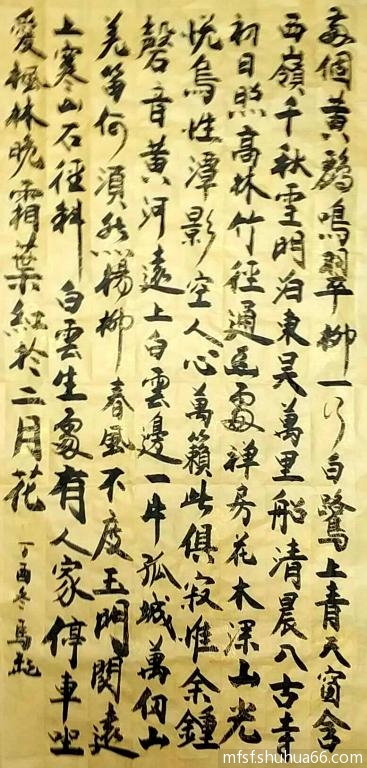 兩個黄鸝鳴翠柳一行白鷺上青天窗含
西嶺千秋雪門泊東吴萬里船清晨入古寺
初日照高林竹徑通幽處禅房花木深山光
悦鳥性潭影空人心萬籟此俱寂惟余鐘
磬音黄河遠上白雲邊一片孤城萬仞山
羌笛何須怨楊柳春風不度玉門関遠
上寒山石徑斜白雲生處有人家停車坐
愛楓林晚霜葉紅於二月花
丁酉冬馬
mfsfshuhua66.com